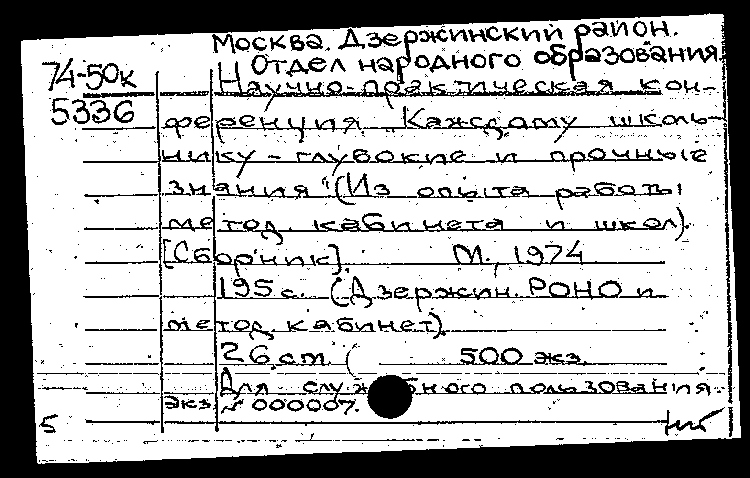 Москва. Дзержинский район.
Отдел народного образования.
74-50к
Научно-практическая кон-
5336
ференция "Каждому школь-
нику - глубокие и прочные
знания" (Из опыта работы
метод. кабинета и школ).
[Сборник]. М., 1974
195 с. (Дзержин. РОНО и
метод. кабинет).
26 см. ( 500 экз.
Для служебного пользования.
экз. № 000007.
5